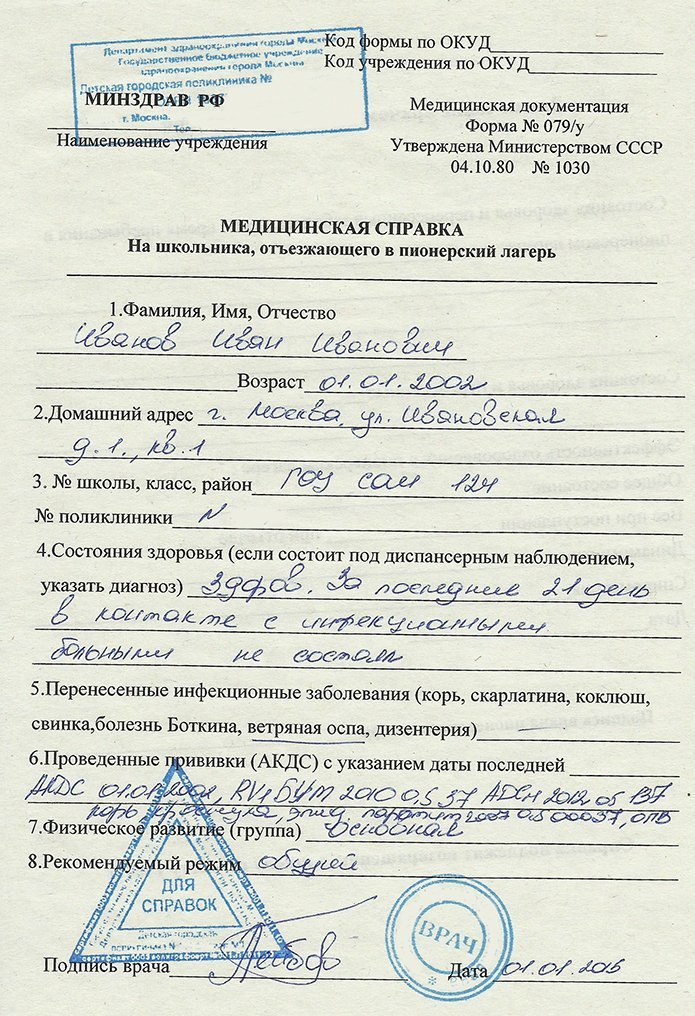 Департамент здравоохранения города Москвы
Государственное бюджетное учреждение
здравоохранения города Москвы
Детская городская поликлиника №
г. Москва.
Тел.
Код формы по ОКУД
Код учреждения по ОКУД
МИНЗДРАВ РФ
Наименование учреждения
Медицинская документация
Форма № 079/у
Утверждена Министерством СССР
04.10.80 № 1030
МЕДИЦИНСКАЯ СПРАВКА
На школьника, отъезжающего в пионерский лагерь
1.Фамилия, Имя, Отчество
Иванов Иван Иванович
Возраст 01.01.2002
2.Домашний адрес г. Москва, ул. Ивановская
д.1., кв.1
3. № школы, класс, район ГОУ сош 124
№ поликлиники N
4.Состояния здоровья (если состоит под диспансерным наблюдением,
указать диагноз) Здоров. За последние 21 день
в контакте с инфекционными
больными не состоял
5.Перенесенные инфекционные заболевания (корь, скарлатина, коклюш,
свинка,болезнь Боткина, ветряная оспа, дизентерия)
6.Проведенные прививки (АКДС) с указанием даты последней
АКДС 01.01.2002, 2010 0,5 37 АДСм 2012 05 137
корь краснуха, эпид. паротит 2007 0.5 00037, ОПВ
7.Физическое развитие (группа) основная
8.Рекомендуемый режим общий
ДЛЯ
СПРАВОК
Детская городская
поликлиника №
ВРАЧ
Подпись врача
Дата 01.01.2015